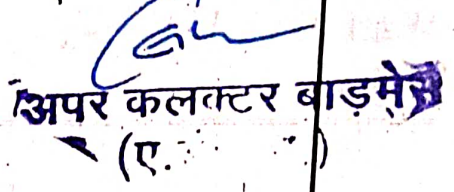 अपर कलक्टर बाड़मेर
(ए.